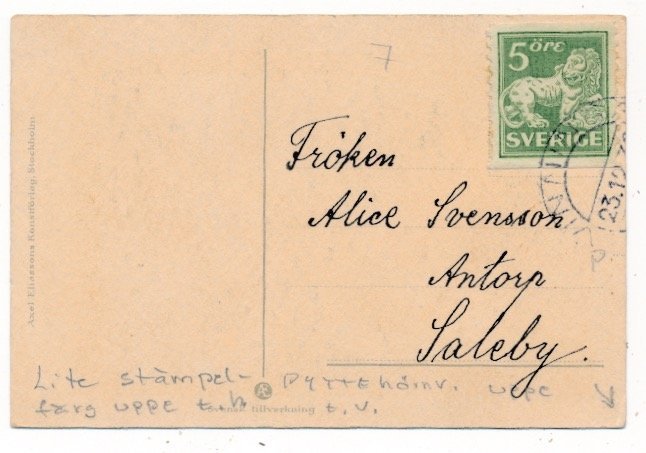 7
5 öre
SVERIGE
23.12
P
Fröken
Alice Svensson
Antorp
Saleby.
Axel Eliassons Konstförlag, Stockholm
Lite stämpel-
färg uppe t.h.
pyttehörnv. uppe
t.v.
Svensk tillverkning